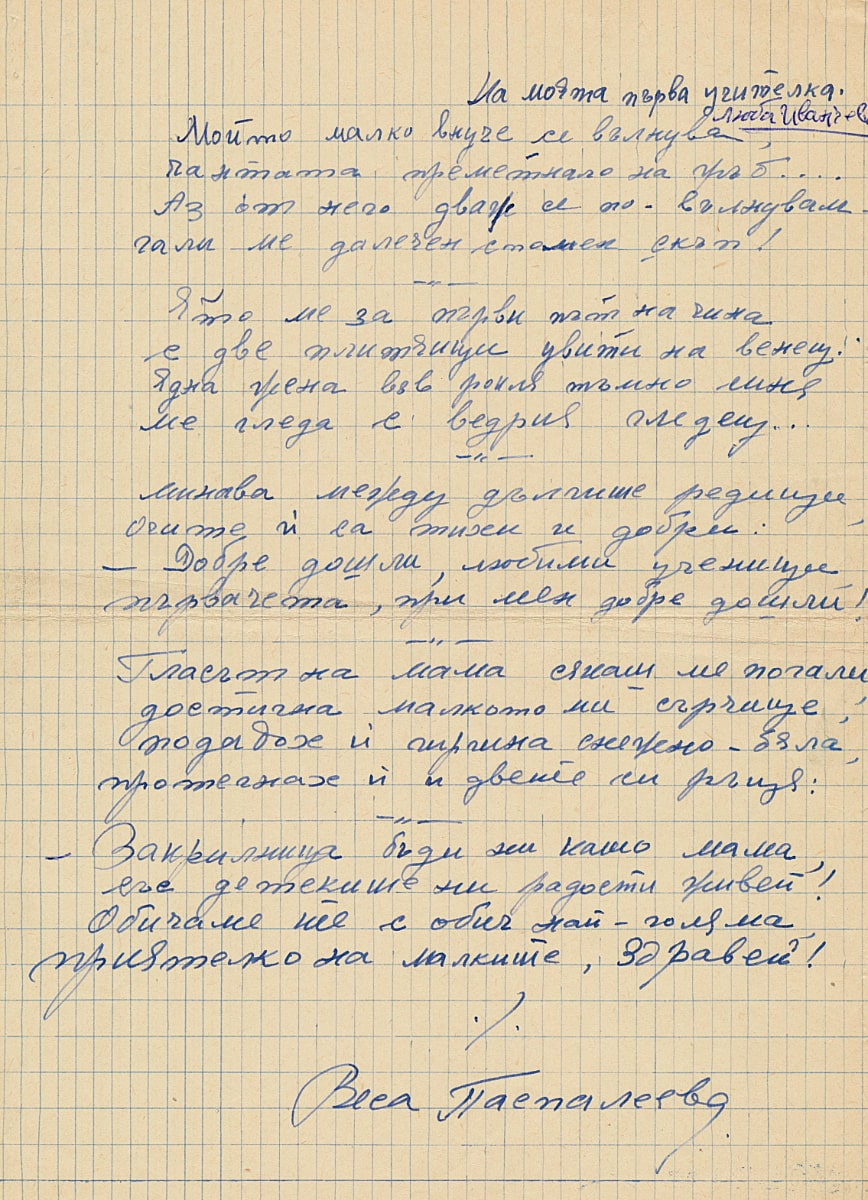 На моята първа учителка.
Люба Иванчева
Мойто малко внуче се вълнува,
чантата преметнало на гръб....
Аз от него дваж се по-вълнувам-
гали ме далечен спомен скъп!
—"—
Ето ме за първи път на чина
с две плитчици увити на венец!
Една жена във рокля тъмно синя
ме гледа с ведрия гледец...
—"—
Минава между дългите редици,
очите ѝ са тихи и добри:
— Добре дошли, любими ученици
първачета, при мен добре дошли!
—"—
Гласът на мама сякаш ме погали,
достигна малкото ми сърчице,
подадох ѝ гиргина снежно-бяла,
протегнах ѝ и двете си ръце:
—"—
— Закрилница бъди ни като мама,
със детските ни радости живей!
Обичаме те с обич най-голяма,
приятелко на малките, Здравей!
./.
Веса Паспалеева